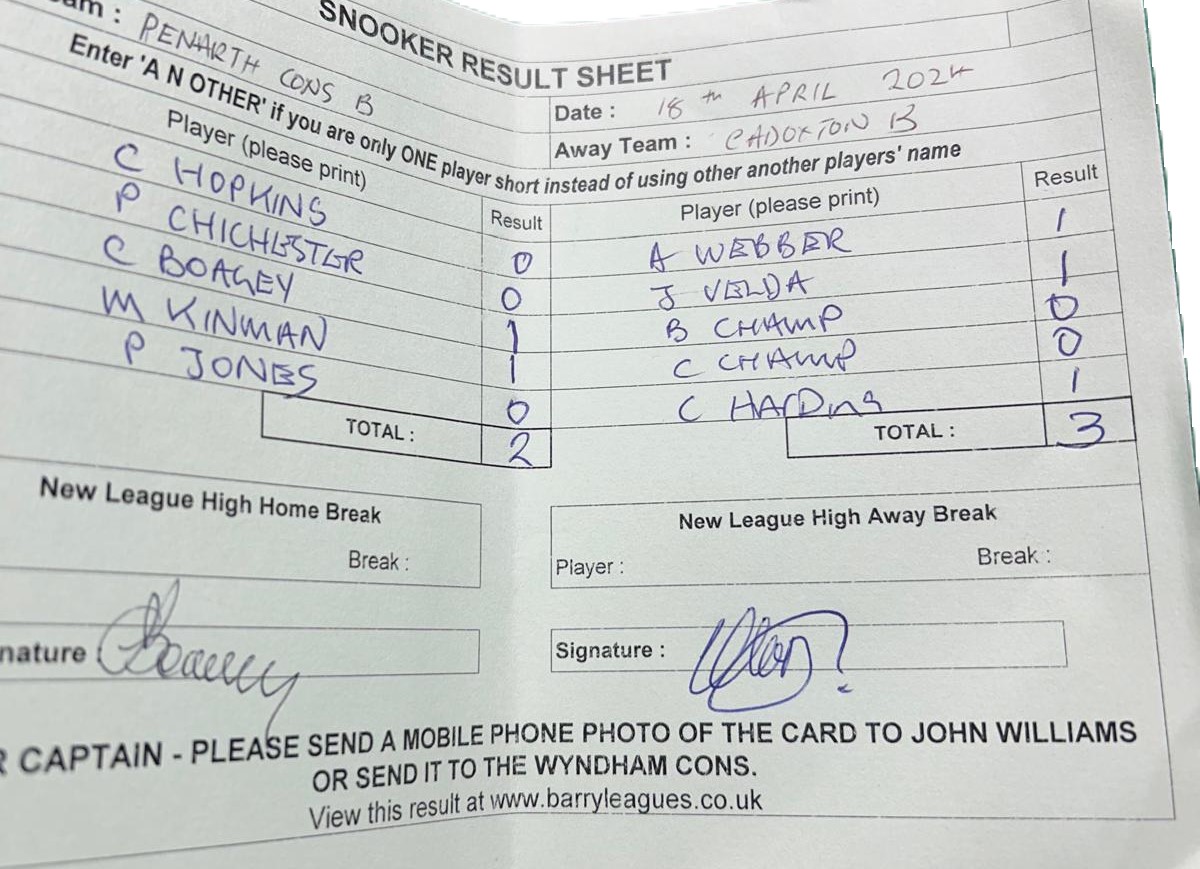 SNOOKER RESULT SHEET
am : PENARTH CONS B
Date : 18 th APRIL 2024
Away Team : CADOXTON B
Enter 'A N OTHER' if you are only ONE player short instead of using other another players' name
Player (please print) Result Player (please print) Result
C HOPKINS 0 A WEBBER 1
P CHICHESTER 0 J VELDA 1
C BOAGEY 1 B CHAMP 0
M KINMAN 1 C CHAMP 0
P JONES 0 C HARDING 1
TOTAL : 2 TOTAL : 3
New League High Home Break New League High Away Break
Break : Player : Break :
nature Signature :
R CAPTAIN - PLEASE SEND A MOBILE PHONE PHOTO OF THE CARD TO JOHN WILLIAMS
OR SEND IT TO THE WYNDHAM CONS.
View this result at www.barryleagues.co.uk